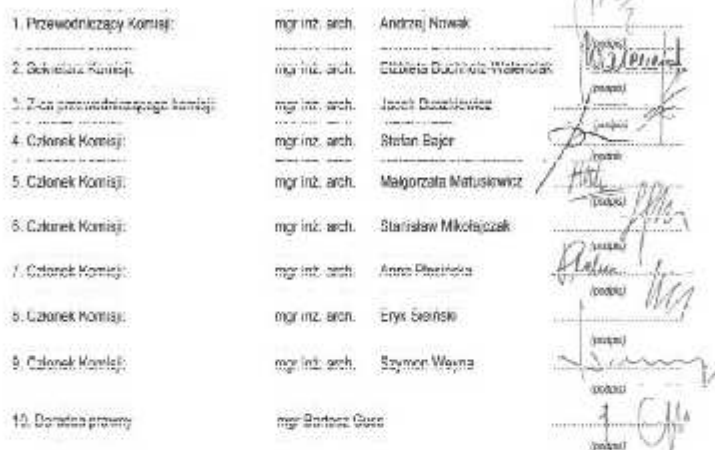 1. Przewodniczący Komisji: mgr inż. arch. Andrzej Nowak
(podpis)
2. Sekretarz Komisji: mgr inż. arch. Elżbieta Buchholz-Walenciak
(podpis)
3. Z-ca przewodniczącego komisji mgr inż. arch. Jacek
(podpis)
4. Członek Komisji: mgr inż. arch. Stefan Bajer
(podpis)
5. Członek Komisji: mgr inż. arch. Małgorzata Matusiewicz
(podpis)
6. Członek Komisji: mgr inż. arch. Stanisław Mikołajczak
(podpis)
7. Członek Komisji: mgr inż. arch. Anna
(podpis)
8. Członek Komisji: mgr inż. arch. Eryk Sieiński
(podpis)
9. Członek Komisji: mgr inż. arch. Szymon Weyna
(podpis)
10. Doradca prawny mgr Bartosz Guss
(podpis)